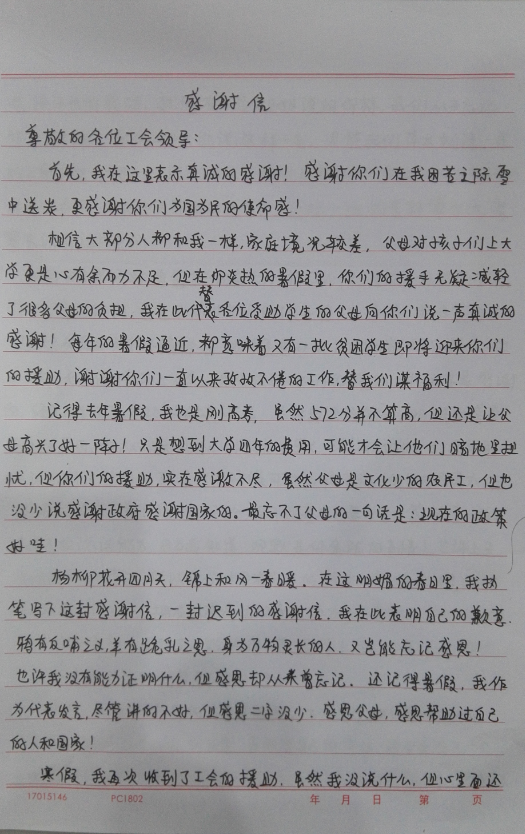 感谢信
尊敬的各位工会领导：
首先，我在这里表示真诚的感谢！感谢你们在我困苦之际雪
中送炭，更感谢你们为国为民的使命感！
相信大部分人都和我一样，家庭境况较差，父母对孩子们上大
学更是心有余而力不足，但在即炎热的暑假里，你们的援手无疑减轻
了很多父母的负担，我在此代替各位受助学生的父母向你们说一声真诚的
感谢！每年的暑假逼近，都意味着又有一批贫困学生即将迎来你们
的援助，谢谢你们一直以来孜孜不倦的工作，替我们谋福利！
记得去年暑假，我也是刚高考，虽然572分并不算高，但还是让父
母高兴了好一阵子！只是想到大学四年的费用，可能才会让他们暗地里担
忧，但你们的援助，实在感激不尽，虽然父母是文化少的农民工，但也
没少说感谢政府感谢国家的。最忘不了父母的一句话是：现在的政策
好哇！
杨柳花开四月天，锦上和风一春暖。在这明媚的春日里，我执
笔写下这封感谢信，一封迟到的感谢信，我在此表明自己的歉意.
鸦有反哺之义，羊有跪乳之恩，身为万物灵长的人，又岂能忘记感恩！
也许我没有能力证明什么，但感恩却从未曾忘记。还记得暑假，我作
为代表发言，尽管讲的不好，但感恩二字没少.感恩父母，感恩帮助过自己
的人和国家！
寒假，我再次收到了工会的援助，虽然我没说什么，但心里面还
17015146 PC1802 年 月 日 第 页